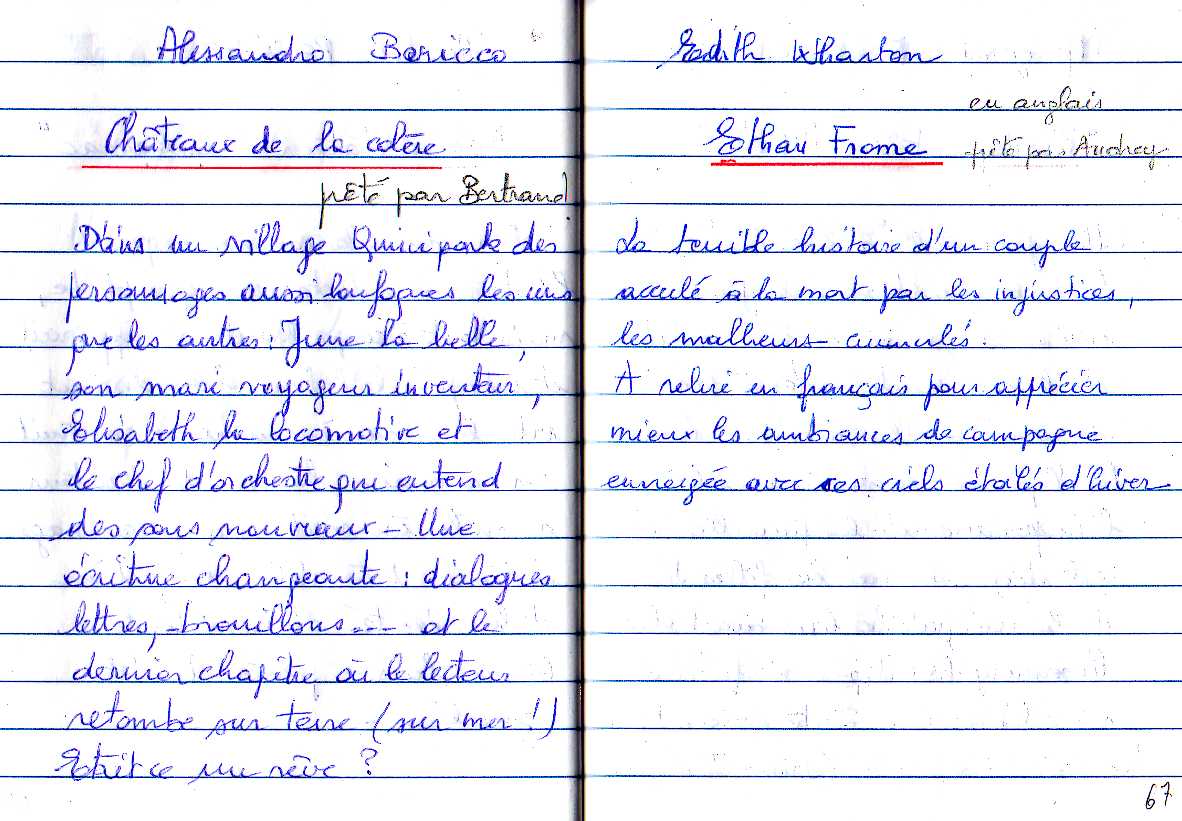 Alessandro Baricco
Châteaux de la colère
prêté par Bertrand
Dans un village Quinipak des
personnages aussi loufoques les uns
que les autres : June la belle,
son mari voyageur inventeur,
Elisabeth la locomotive et
le chef d'orchestre qui entend
des sons nouveaux - Une
écriture changeante : dialogues
lettres, brouillons --- et le
dernier chapitre où le lecteur
retombe sur terre (sur mer !)
Etait ce un rêve ?
Edith Wharton
en anglais
Ethan Frome prêté par Audrey
La terrible histoire d'un couple
acculé à la mort par les injustices,
les malheurs cumulés.
A relire en français pour apprécier
mieux les ambiances de campagne
enneigée avec ses ciels étoilés d'hiver
67